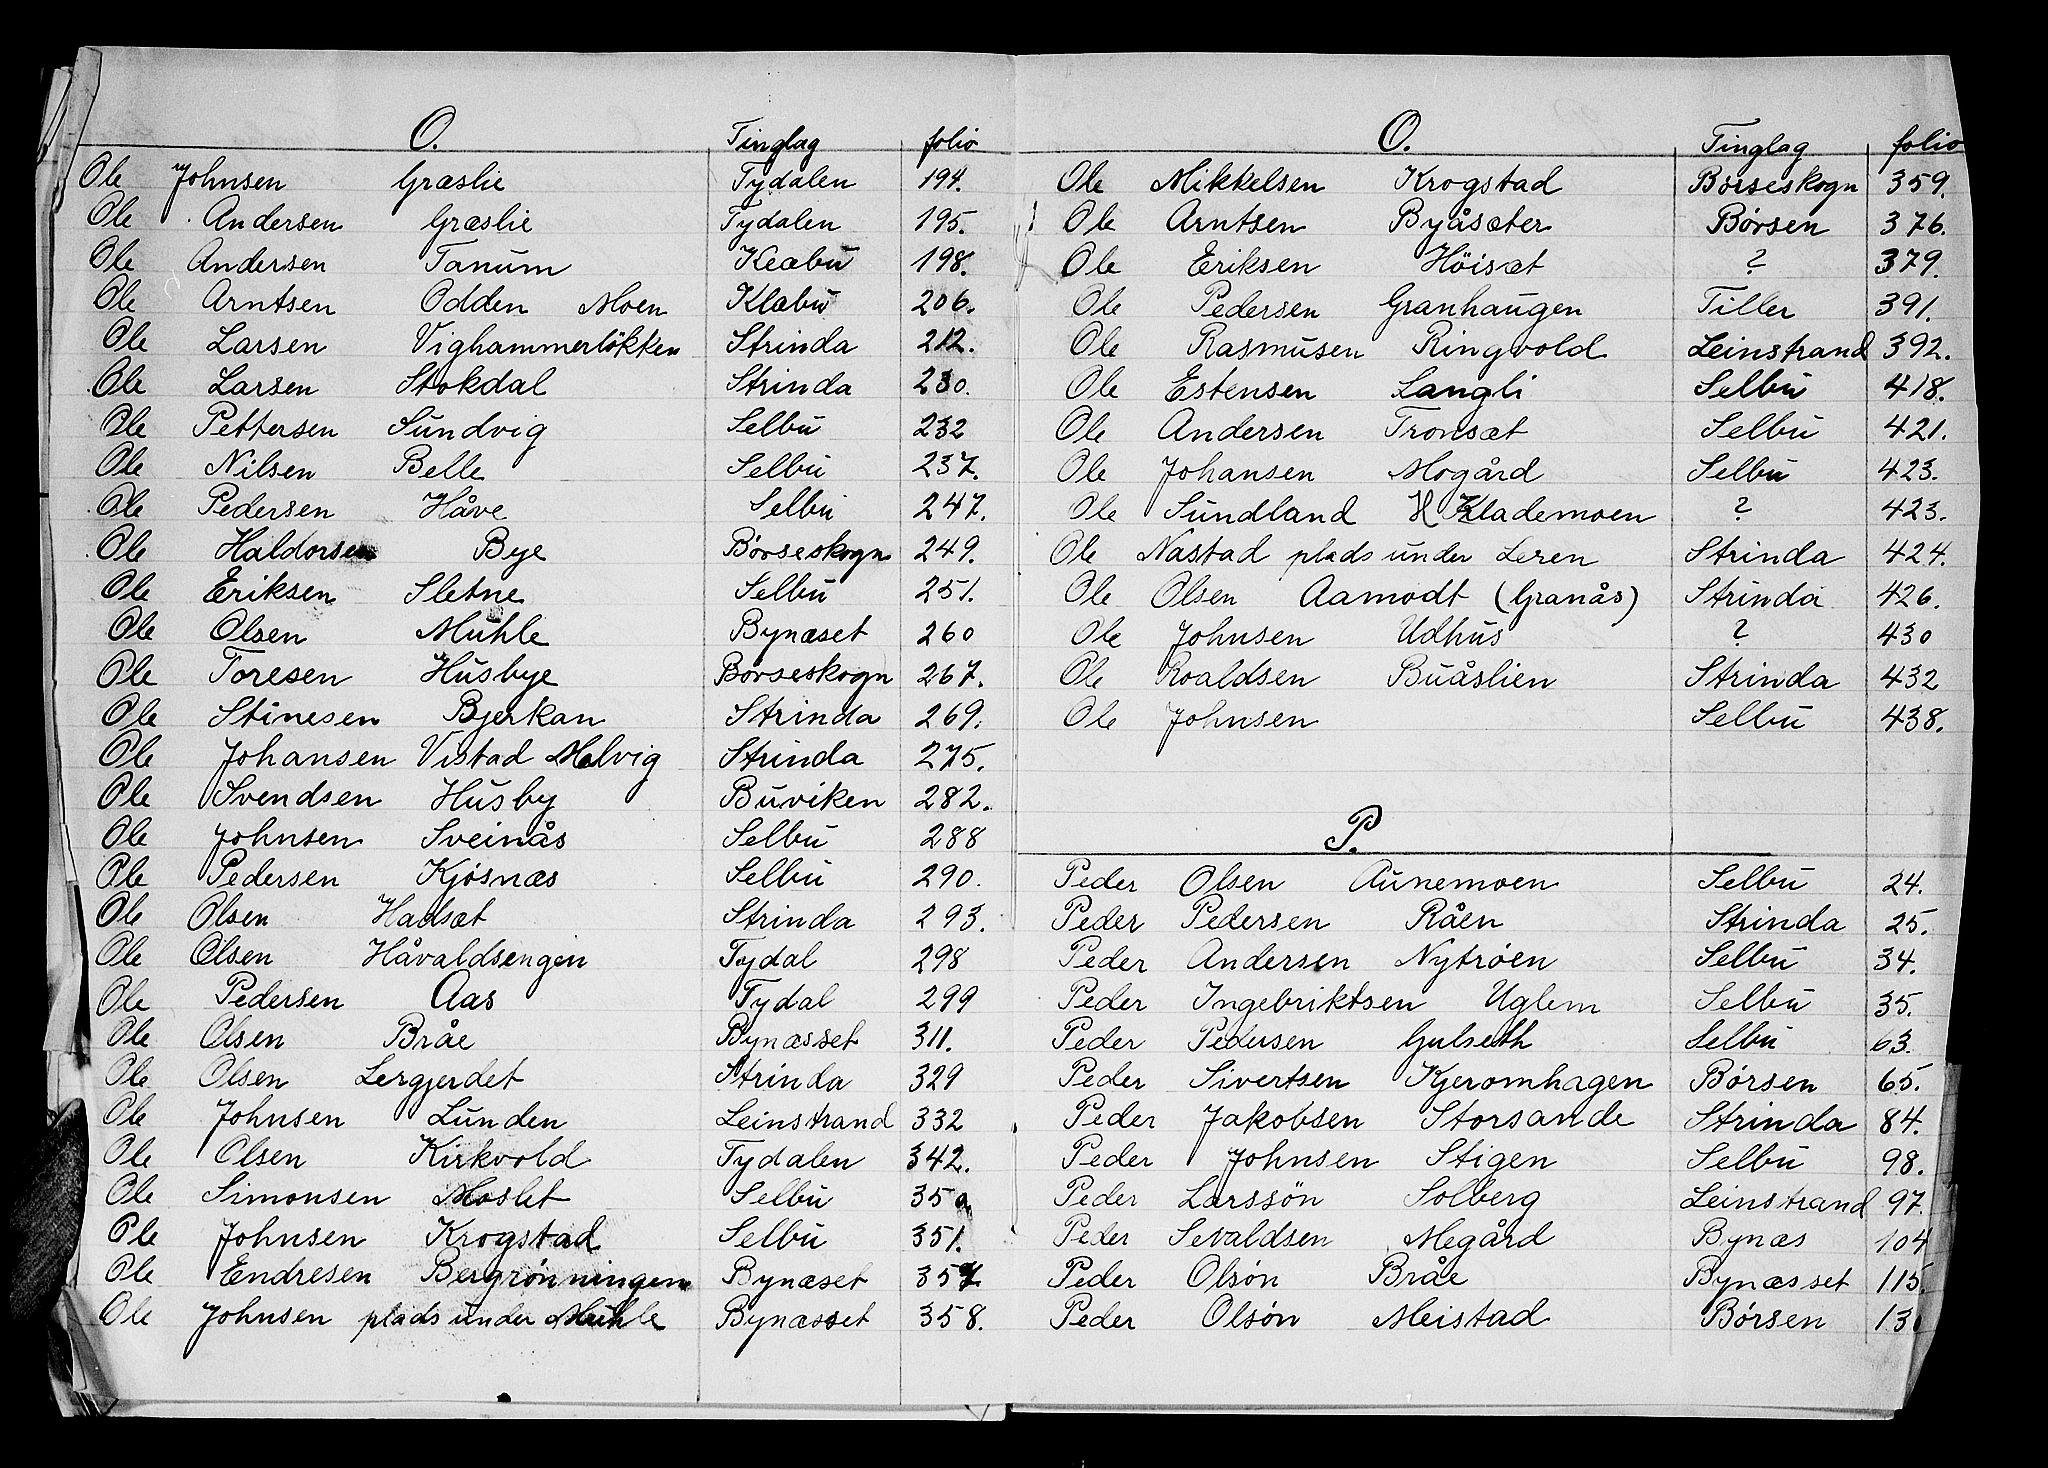 O. Tinglag folio
Ole Johnsen Græslie Tydalen 194.
Ole Andersen Græslie Tydalen 195.
Ole Andersen Tanum Klæbu 198.
Ole Arntsen Odden Moen Klæbu 206.
Ole Larsen Vighammerlökken Strinda 212.
Ole Larsen Stokdal Strinda 230.
Ole Pettersen Sundvig Selbu 232
Ole Nilsen Belle Selbu 237.
Ole Pedersen Håve Selbu 247.
Ole Haldorsen Bye Børseskogn 249.
Ole Eriksen Sletne Selbu 251.
Ole Olsen Mühle Bynæset 260
Ole Toresen Husbye Børseskogn 267.
Ole Stinesen Bjerkan Strinda 269.
Ole Johansen Vistad Malvig Strinda 275.
Ole Svendsen Husby Buviken 282.
Ole Johnsen Sveinås Selbu 288
Ole Pedersen Kjøsnæs Selbu 290.
Ole Olsen Hadsæt Strinda 293.
Ole Olsen Håvaldsengen Tydal 298
Ole Pedersen Aas Tydal 299
Ole Olsen Bråe Bynæsset 311.
Ole Olsen Lergjerdet Strinda 329
Ole Johnsen Lunden Leinstrand 332
Ole Olsen Kirkvold Tydalen 342.
Ole Simonsen Moslet Selbu
Ole Johnsen Krogstad Selbu 351.
Ole Endresen Bergrønningen Bynæset 357
Ole Johnsen plads under Mühle Bynæsset 358.
O. Tinglag folio
Ole Mikkelsen Krogstad Børseskogn 359.
Ole Arntsen Byåsæter Børsen 376.
Ole Eriksen Höisæt ? 379.
Ole Pedersen Granhaugen Tiller 391.
Ole Rasmusen Ringvold Leinstrand 392.
Ole Estensen Langli Selbu 418.
Ole Andersen Tronsæt Selbu 421.
Ole Johansen Mogård Selbu 423.
Ole Sundland Klademoen ? 423.
Ole Nastad plads under Leren Strinda 424.
Ole Olsen Aamodt (Granås) Strinda 426.
Ole Johnsen Udhus ? 430
Ole Roaldsen Buåslien Strinda 432
Ole Johnsen Selbu 438.
P.
Peder Olsen Aunemoen Selbu 24.
Peder Pedersen Råen Strinda 25.
Peder Andersen Nytrøen Selbu 34.
Peder Ingebriktsen Uglem Selbu 35.
Peder Pedersen Gulseth Selbu 63.
Peder Sivertsen Kjeromhagen Børsen 65.
Peder Jakobsen Storsande Strinda 84.
Peder Johnsen Stigen Selbu 98.
Peder Larssön Solberg Leinstrand 97.
Peder Sevaldsen Megård Bynæs 104
Peder Olsøn Bråe Bynæsset 115.
Peder Olsøn Meistad Børsen